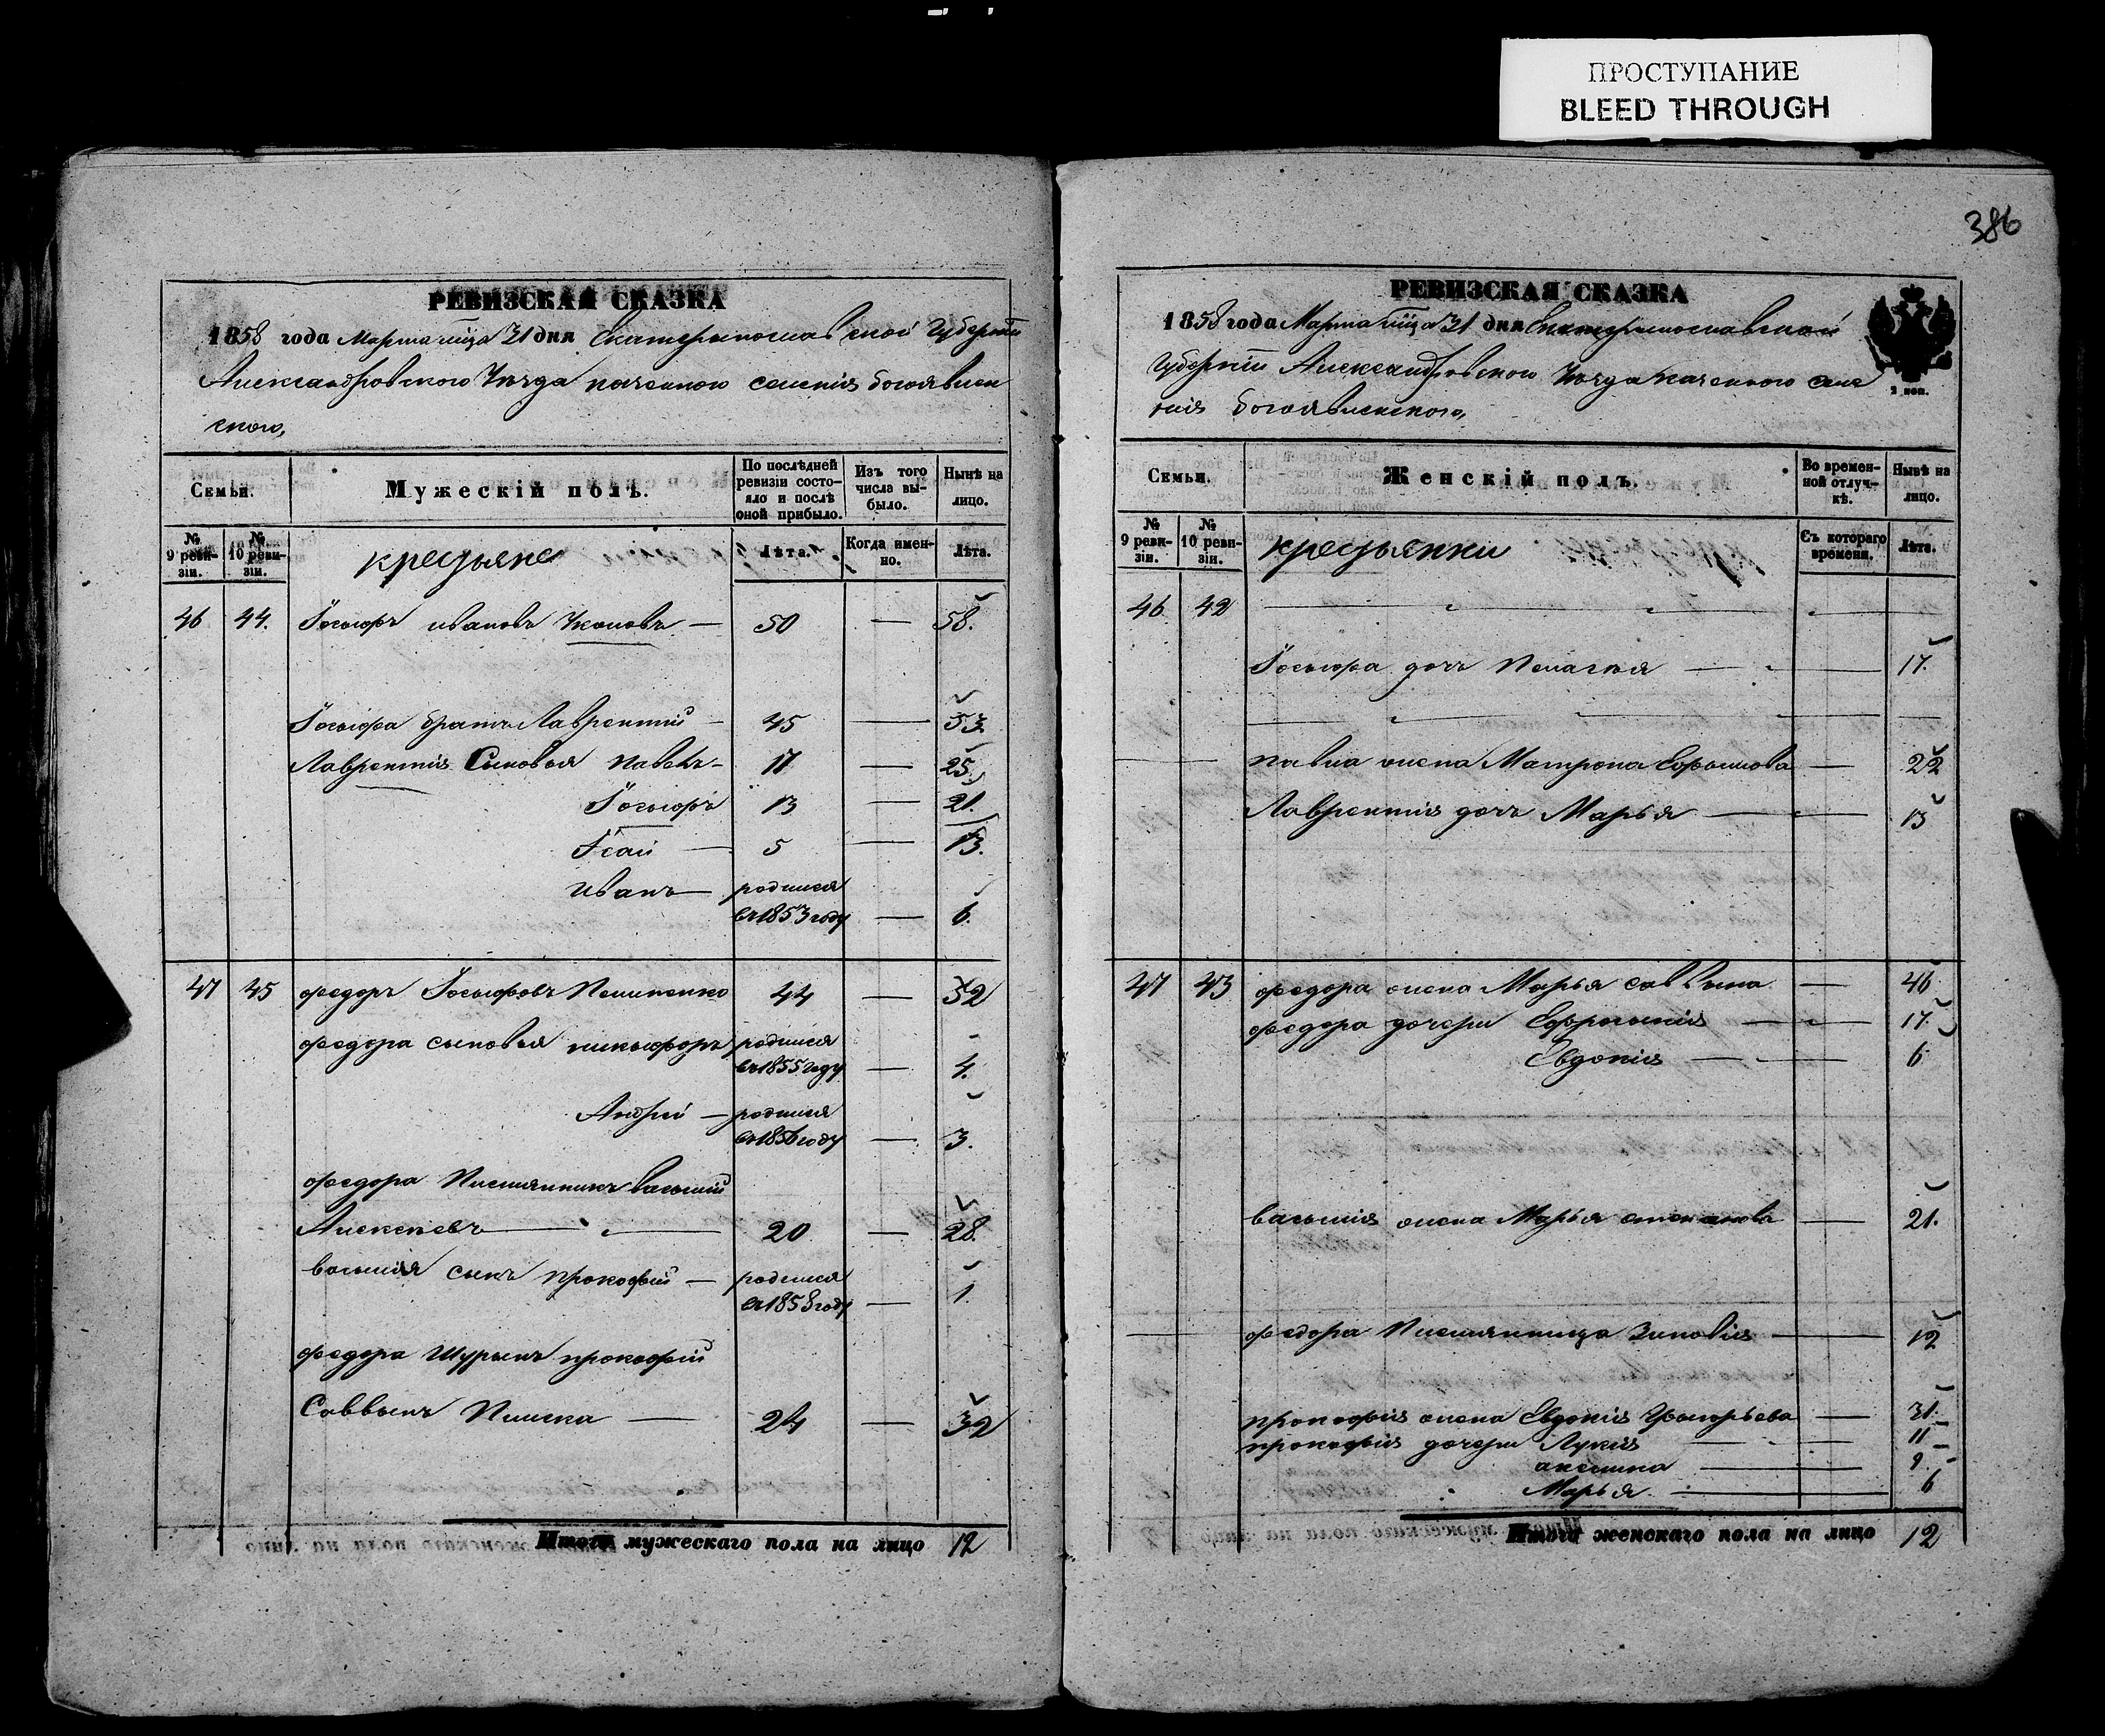 ПРОСТУПАНИЕ
BLEED THROUGH
386
РЕВИЗСКАЯ СКАЗКА
1858 года Марта мца 31 дня Екатеринославской Губернии
Александровского Уезда казенного селения Богоявлен
ского,
Семьи.
Мужескій полъ.
По послѣдней ревизіи состояло и послѣ оной прибыло.
Изъ того числа выбыло.
Нынѣ на лицо.
№ 9 ревизіи.
№ 10 ревизіи.
крестьяне
Лѣта.
Когда именно.
Лѣта.
46 44. Іосифъ Ивановъ — 50 — 58.
Іосифа братъ Лаврентий — 45 — 53
Лаврентия Сыновья Павелъ — 17 — 25.
Іосифъ 13 — 21.
Ісай — 5 — 13.
Иванъ — родился
въ 1853 году — 6.
47 45 Федоръ Іосифовъ 44 — 52
Федора сыновья Никифоръ родился
въ 1855 году — 4.
Андрей — родился
въ 1856 году — 3.
Федора Племянникъ Василий
Алексеевъ — 20 — 28.
Василия сынъ Прокофий — родился
въ 1858 году — 1.
Федора Шуринъ Прокофий
Саввинъ — 24 — 32
Итого мужескаго пола на лицо 12
РЕВИЗСКАЯ СКАЗКА
1858 года Марта мца 31 дня Екатеринославской
Губернии Александровского Уезда казенного селе
ния Богоявленского,
2 коп.
Семьи.
Женскій полъ.
Во временной отлучкѣ.
Нынѣ на лицо.
№ 9 ревизіи.
№ 10 ревизіи.
крестьянки
Съ котораго времени.
Лѣта.
46 42
Іосифа дочь Пелагея — 17.
Павла жена Матрона Ефимова — 22
Лаврентия дочь Марья — 13
47 43 Федора жена Марья Саввина — 46
Федора дочери Ефросиния — 17.
Евдокия — 6
Василия жена Марья Степанова — 21.
Федора Племянница Зиновия — 12
Прокофия жена Евдокия Григорьева — 31.
Прокофия дочери Лукия — 11
Аксиния — 9.
Марья — 6
Итого женскаго пола на лицо 12